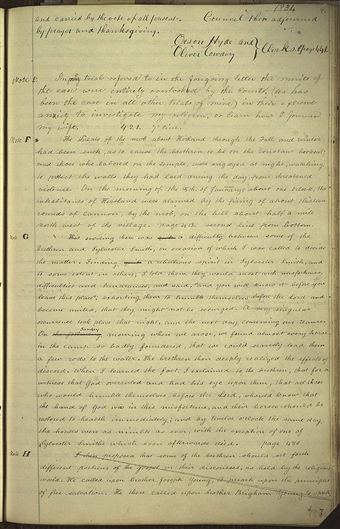 1834
and carried by the vote of all present. Council then adjourned
by prayer and thanksgiving.
Orson Hyde and
Oliver Cowdery
Clerks
Note E
In my trial referred to in the foregoing letter the merits of
the case were entirely overlooked by the Courts, (as has
been the case in all other trials of mine) in their extreme
anxiety to investigate my religion, or learn how I
my wife. 421.
Note F
The threats of the mob about Kirtland through the fall and winter
had been such, as to cause the brethren to be on the constant lookout,
and those who labored on the temple, were engaged at night watching
to protect the walls they had laid during the day, from threatened
violence. On the morning of the 8th of January, about one o'clock, the
inhabitants of Kirtland were alarmed by the firing of about thirteen
rounds of cannon, by the mob, on the hill about half a mile
north west of the village. page 413. second line from bottom.
Note G
This evening there was a difficulty between some of the
brethren and Sylvester Smith, on occasion of which I was called to decide
the matter. Finding a rebellious spirit in Sylvester Smith, and
to some extent in others, I told them they would meet with misfortunes,
difficulties and hindrances, and said, "and you will know it before you
leave this place", exhorting them to humble themselves before the Lord and
become united, that they might not be scourged. A very singular
occurrence took place that night, and the next day, concerning our teams.
On Sunday morning when we arose, we found almost every horse
in the camp so badly foundered, that we could scarcely lead them
a few rods to the water. The brethren then deeply realized the effects of
discord. When I learned the fact, I exclaimed to the brethren, that for a
witness that God overruled and had his eye upon them, that all those
who would humble themselves before the Lord, should know that
the hand of God was in this misfortune, and their horses should be
restored to health immediately; and by twelve o'clock the same day
the horses were as nimble as ever, with the exception of one of
Sylvester Smith's which soon afterwards died. page 480
Note H
I then proposed that some of the brethren should set forth
different portions of the gospel in their discourses, as held by the religious
world. He called upon brother Joseph Young, to preach upon the principles
of free salvation. He then called upon brother Brigham Young to speak